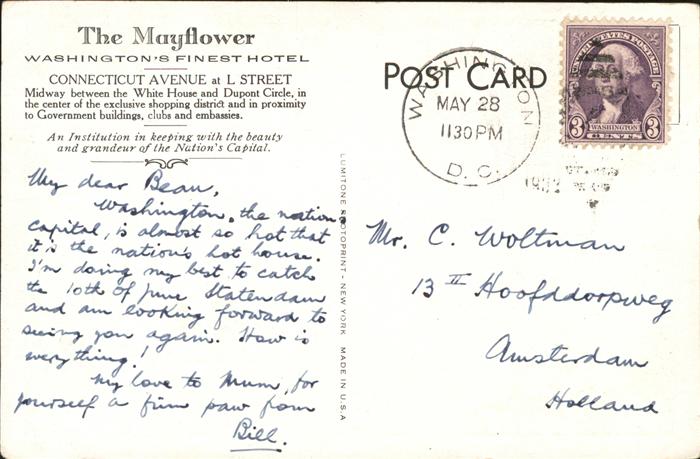 The Mayflower
WASHINGTON'S FINEST HOTEL
CONNECTICUT AVENUE at L STREET
Midway between the White House and Dupont Circle, in
the center of the exclusive shopping district and in proximity
to Government buildings, clubs and embassies.
An Institution in keeping with the beauty
and grandeur of the Nation's Capital.
My dear Beau,
Washington, the nation's
capital, is almost so hot that
it is the nation's hot house.
I'm doing my best to catch
the 10th of June Statendam
and am looking forward to
seeing you again. How is
everything!
My love to Mum, for
yourself a firm paw from
Bill.
LUMITONE PHOTOPRINT - NEW YORK MADE IN U.S.A
POST CARD
WASHINGTON
MAY 28
1130 PM
D.C.
UNITED STATES POSTAGE
3 WASHINGTON 3
CENTS
Mr. C. Woltman
13 II Hoofddorpweg
Amsterdam
Holland